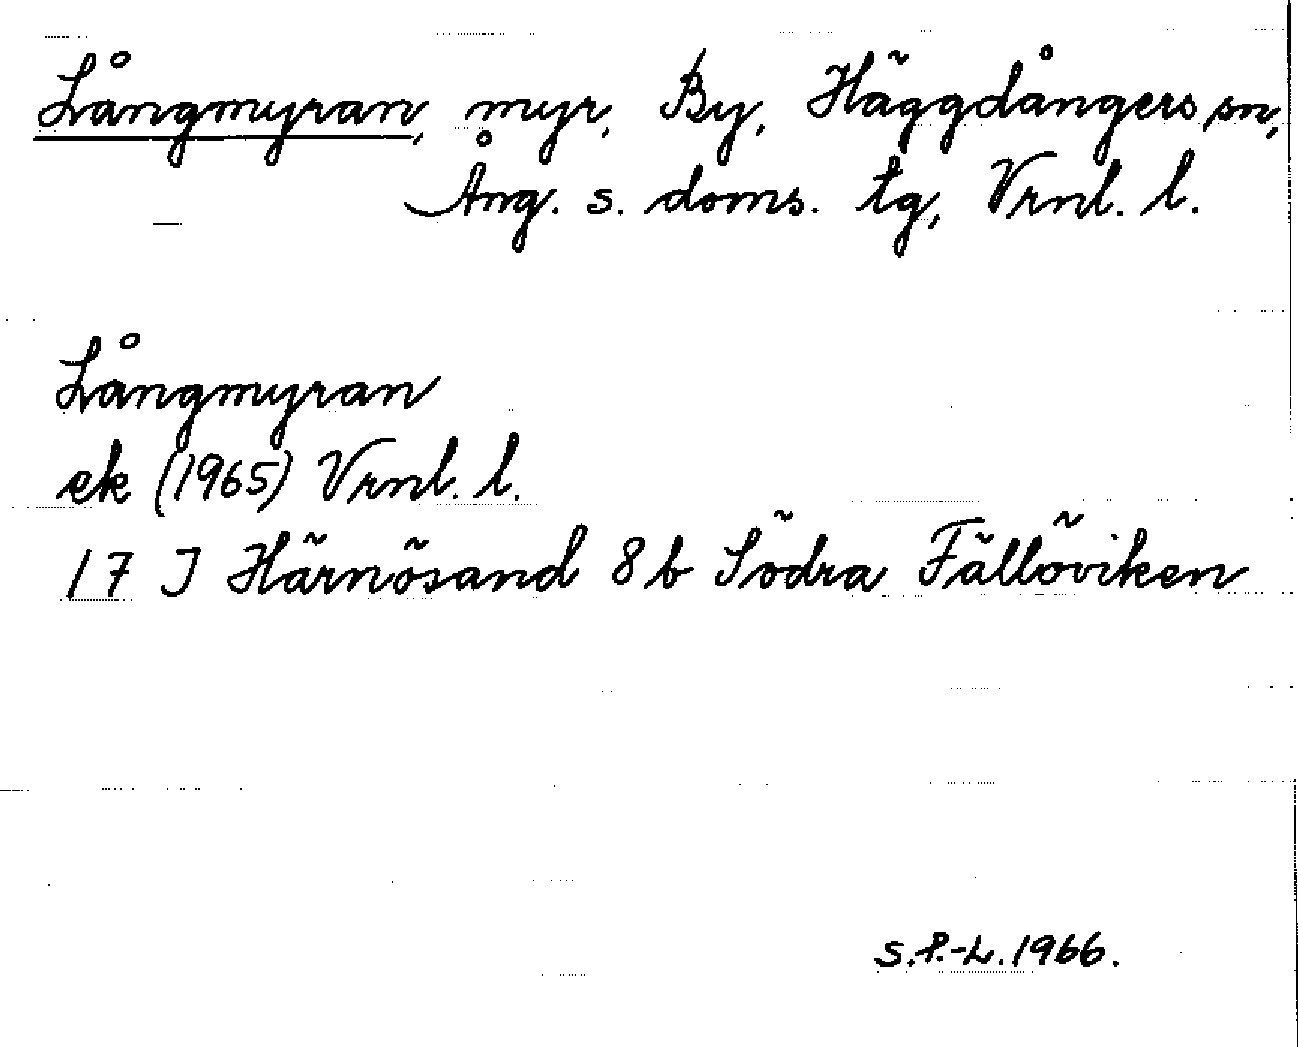 Långmyran, myr, By, Häggdångers sn,
Ång. s. doms. tg, Vrnl. l.
Långmyran
ek (1965) Vrnl. l.
17 J Härnösand 8 b Södra Fällöviken
S.P.-L. 1966.